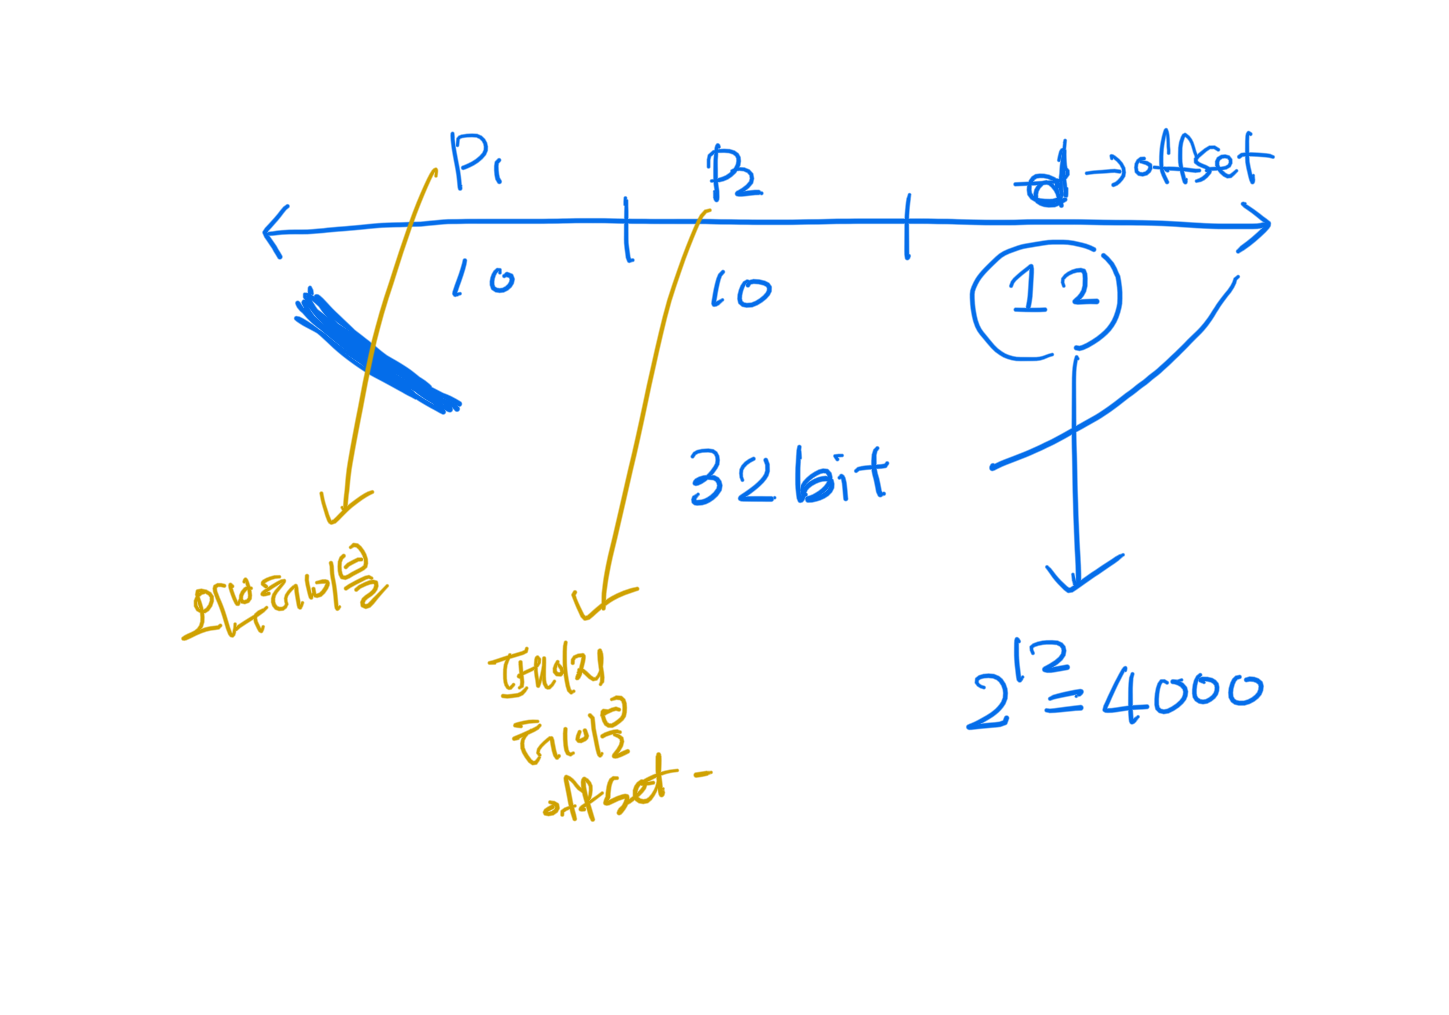 P₁ P₂ d → offset
10 10 12
32bit
외부테이블
페이지
테이블
offset -
2¹² = 4000